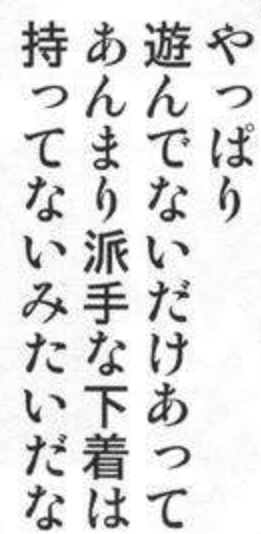 やっぱり
遊んでないだけあって
あんまり派手な下着は
持ってないみたいだな